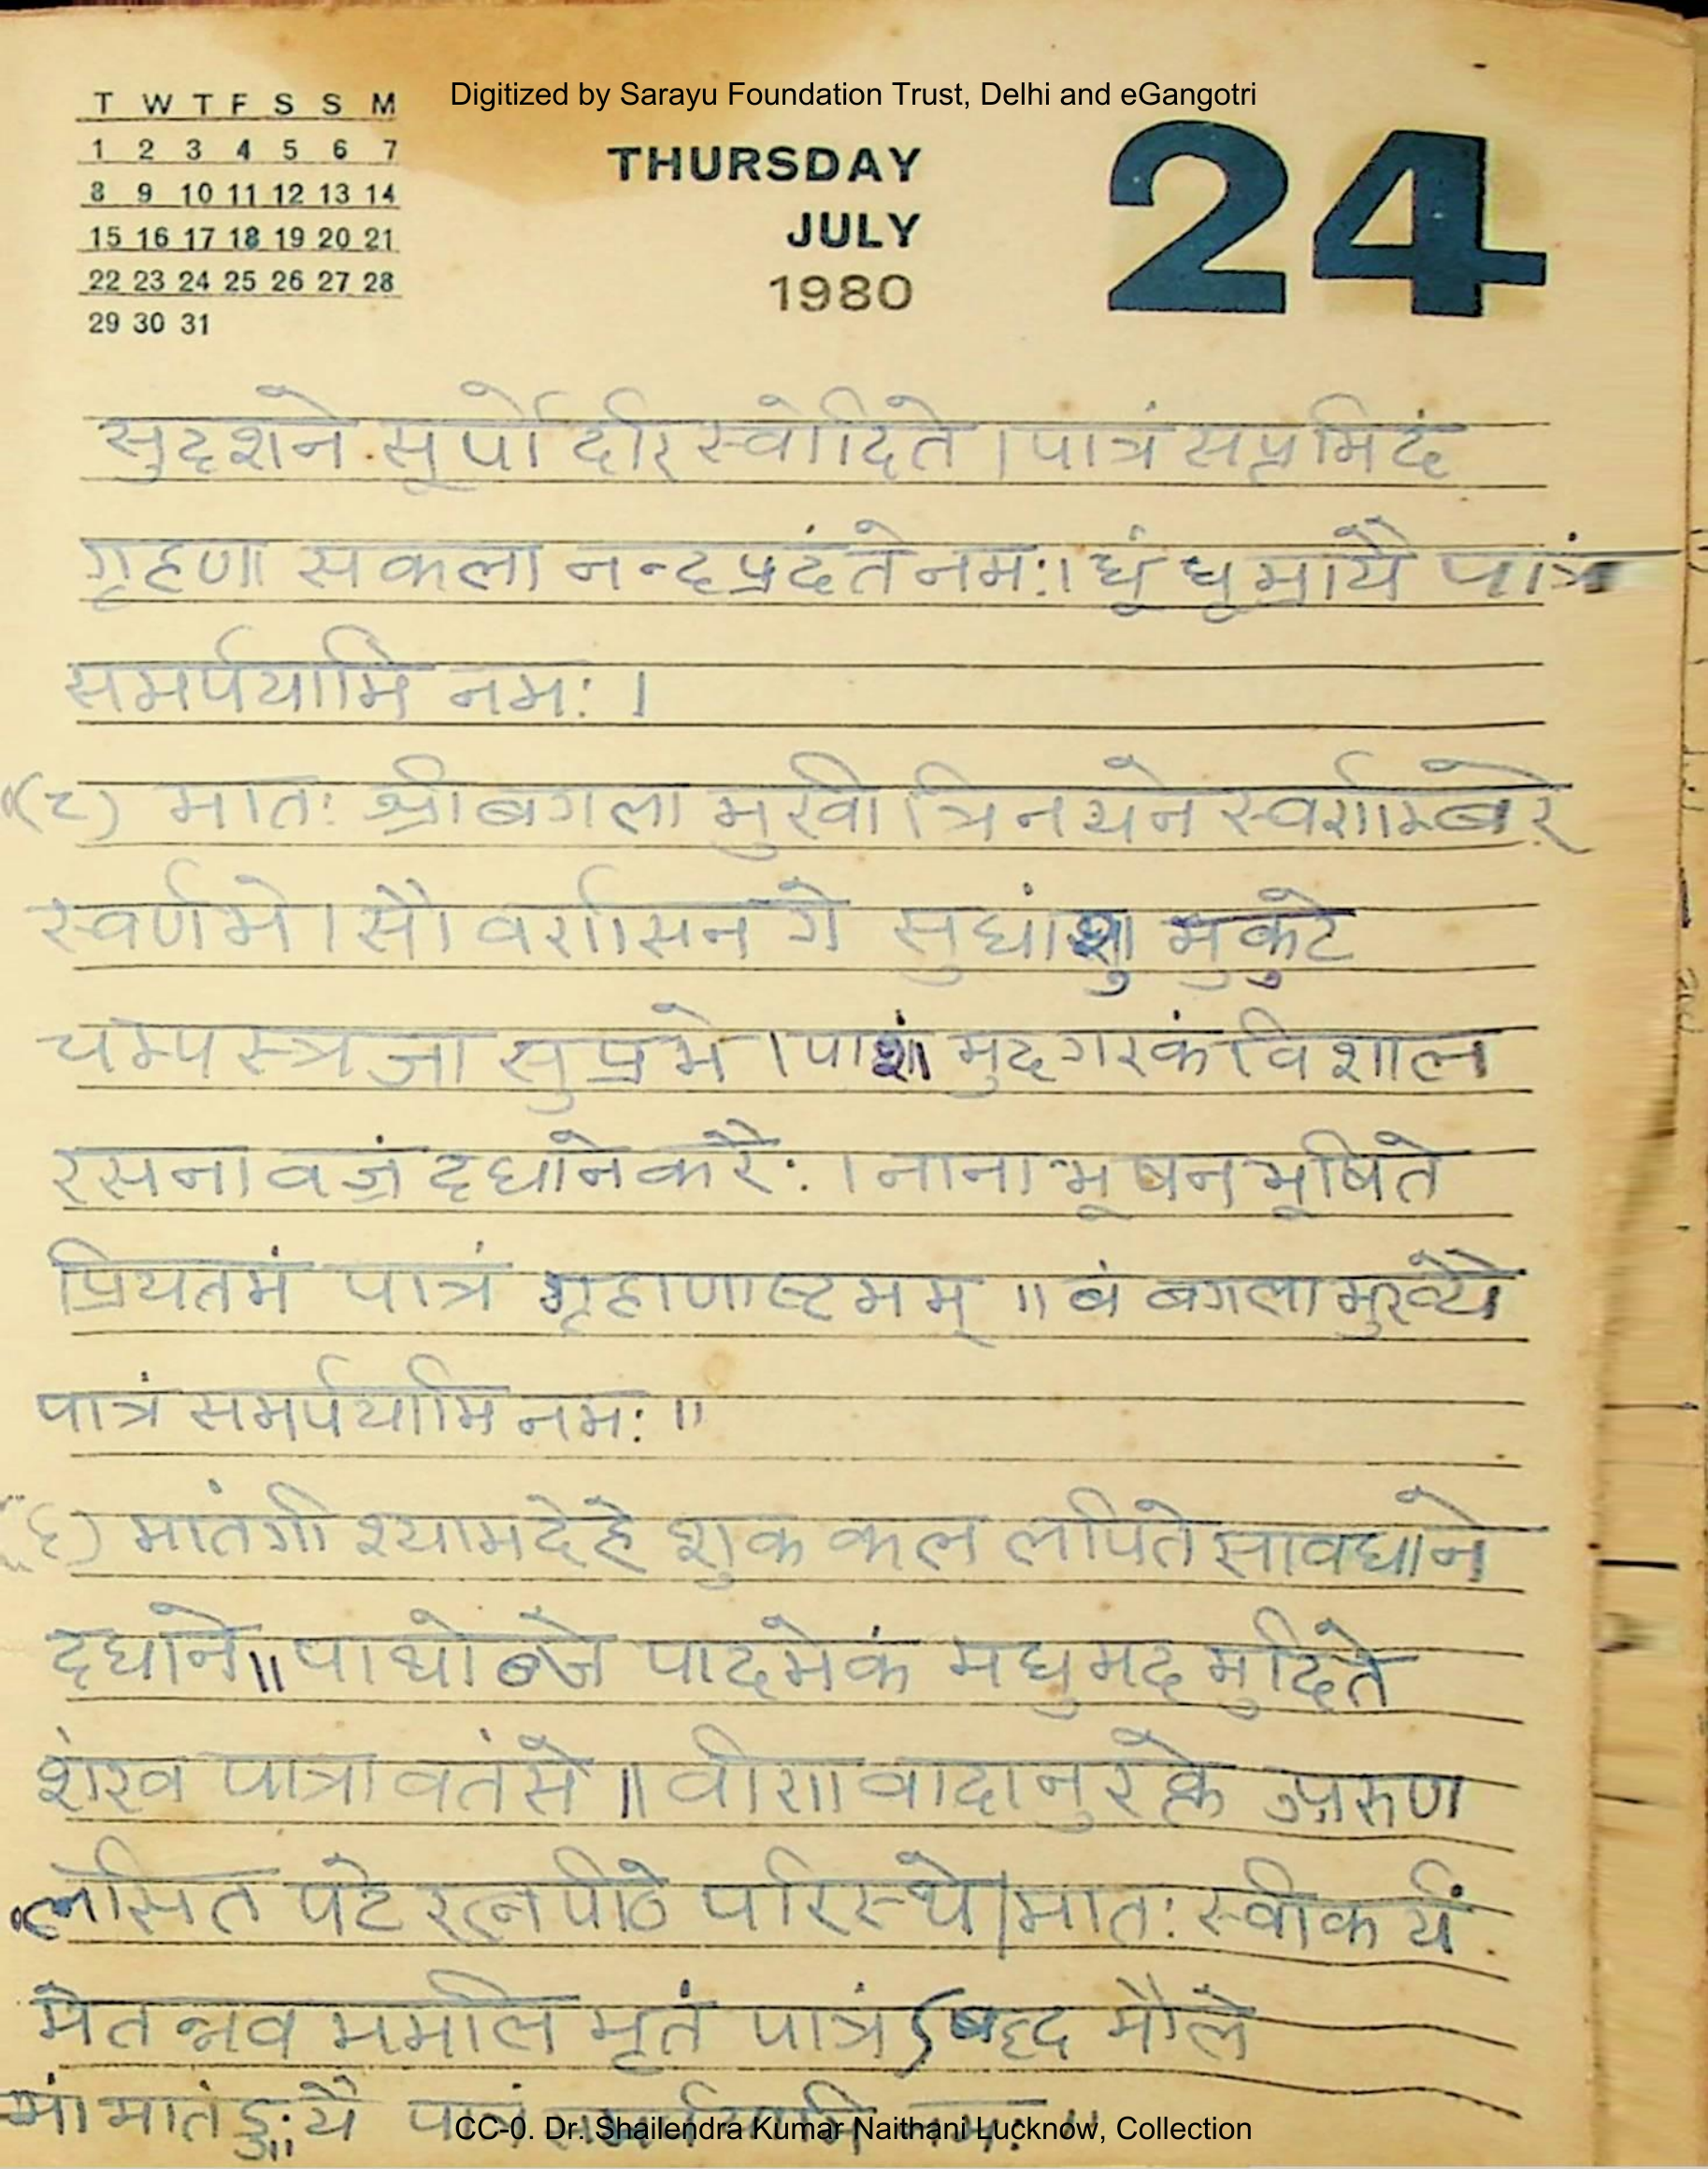 Digitized by Sarayu Foundation Trust, Delhi and eGangotri
T W T F S S M
1 2 3 4 5 6 7
8 9 10 11 12 13 14
15 16 17 18 19 20 21
22 23 24 25 26 27 28
29 30 31
THURSDAY
JULY
1980
24
सुदृशने सूर्पो दरि स्वोदिते । पात्रं सप्तमिदं
गृहणा सकला नन्द प्रदं ते नमः। धूं धूम्रायै पात्रं
समर्पयामि नमः ।
(८) मातः श्री बगला मुखी त्रिनयने स्वर्णाम्बरे
स्वर्णभे । सौवर्णासनगे सुधांशु मुकुटे
चम्पस्त्रजा सुप्रभे । पाशं मुदगरकं विशाल
रसना वज्रं दधाने करैः । नाना भूषन भूषिते
प्रियतमं पात्रं गृहाणाष्टमम् ॥ बं बगलामुख्यै
पात्रं समर्पयामि नमः ॥
(९) मातंगी श्यामदेहे शुक कल लपिते सावधाने
दधाने॥ पाथोब्जे पादमेकं मधुमद मुदिते
शंख पात्रावतंसे ॥ वीणावादानुरक्ते अरुण
लसित पटे रत्नपीठे परिस्थे। मातः स्वीकर्यं
मेतन्नव ममलि मृतं पात्रं मौले
मां मातंङ्ग्यै पात्रं समर्पयामि नमः ॥
CC-0. Dr. Shailendra Kumar Naithani Lucknow, Collection